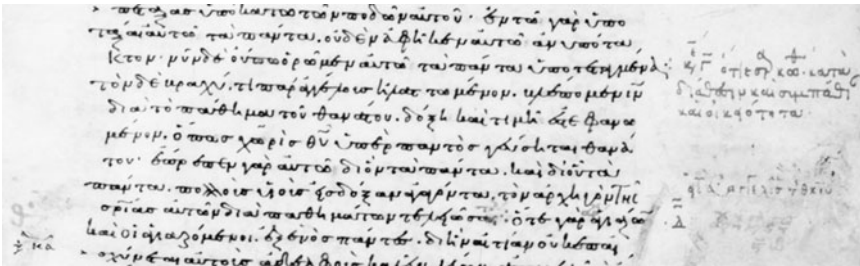 πέταξας ὑποκάτω τῶν ποδῶν αὐτοῦ · ἐν τῶ γὰρ ὑπο
τάξαι αὐτῶ τὰ πάντα. οὐδὲν ἀφῆκεν αὐτῶ ἀνυπότα
κτον· νῦν δὲ οὔπω ὁρῶμεν αὐτῶ τὰ πάντα ὑποτεταγμένα
τὸν δὲ βραχύ τι παρ' ἀγγέλοις ἠλαττωμένον. βλέπομεν ιν
διὰ τὸ πάθημα τοῦ θανάτου. δόξη καὶ τιμῆ ἐστεφανω
μένον. ὅπως χωρὶς θυ ὑπὲρ παντὸς γεύσηται θανά
του· ἔπρεπεν γὰρ αὐτῶ δι' ὃν τὰ πάντα. καὶ δι' οὗ τὰ
πάντα. πολλοὺς υἱοὺς εἰς δόξαν ἀγαγόντα. τὸν ἀρχηγὸν τῆς
σριας αὐτῶν διὰ παθημάτων τελειῶσαι· ὅ τε γὰρ ἁγιάζων
καὶ οἱ ἁγιαζόμενοι. ἐξ ἑνὸς πάντες. δι' ἣν αἰτίαν οὐκ ἐπαι
σχύνεται αὐτοὺς ἀδελφοὺς
κατὰ
διάθεσιν καὶ συμπάθει
καὶ οἰκειότητα
κα
Δ